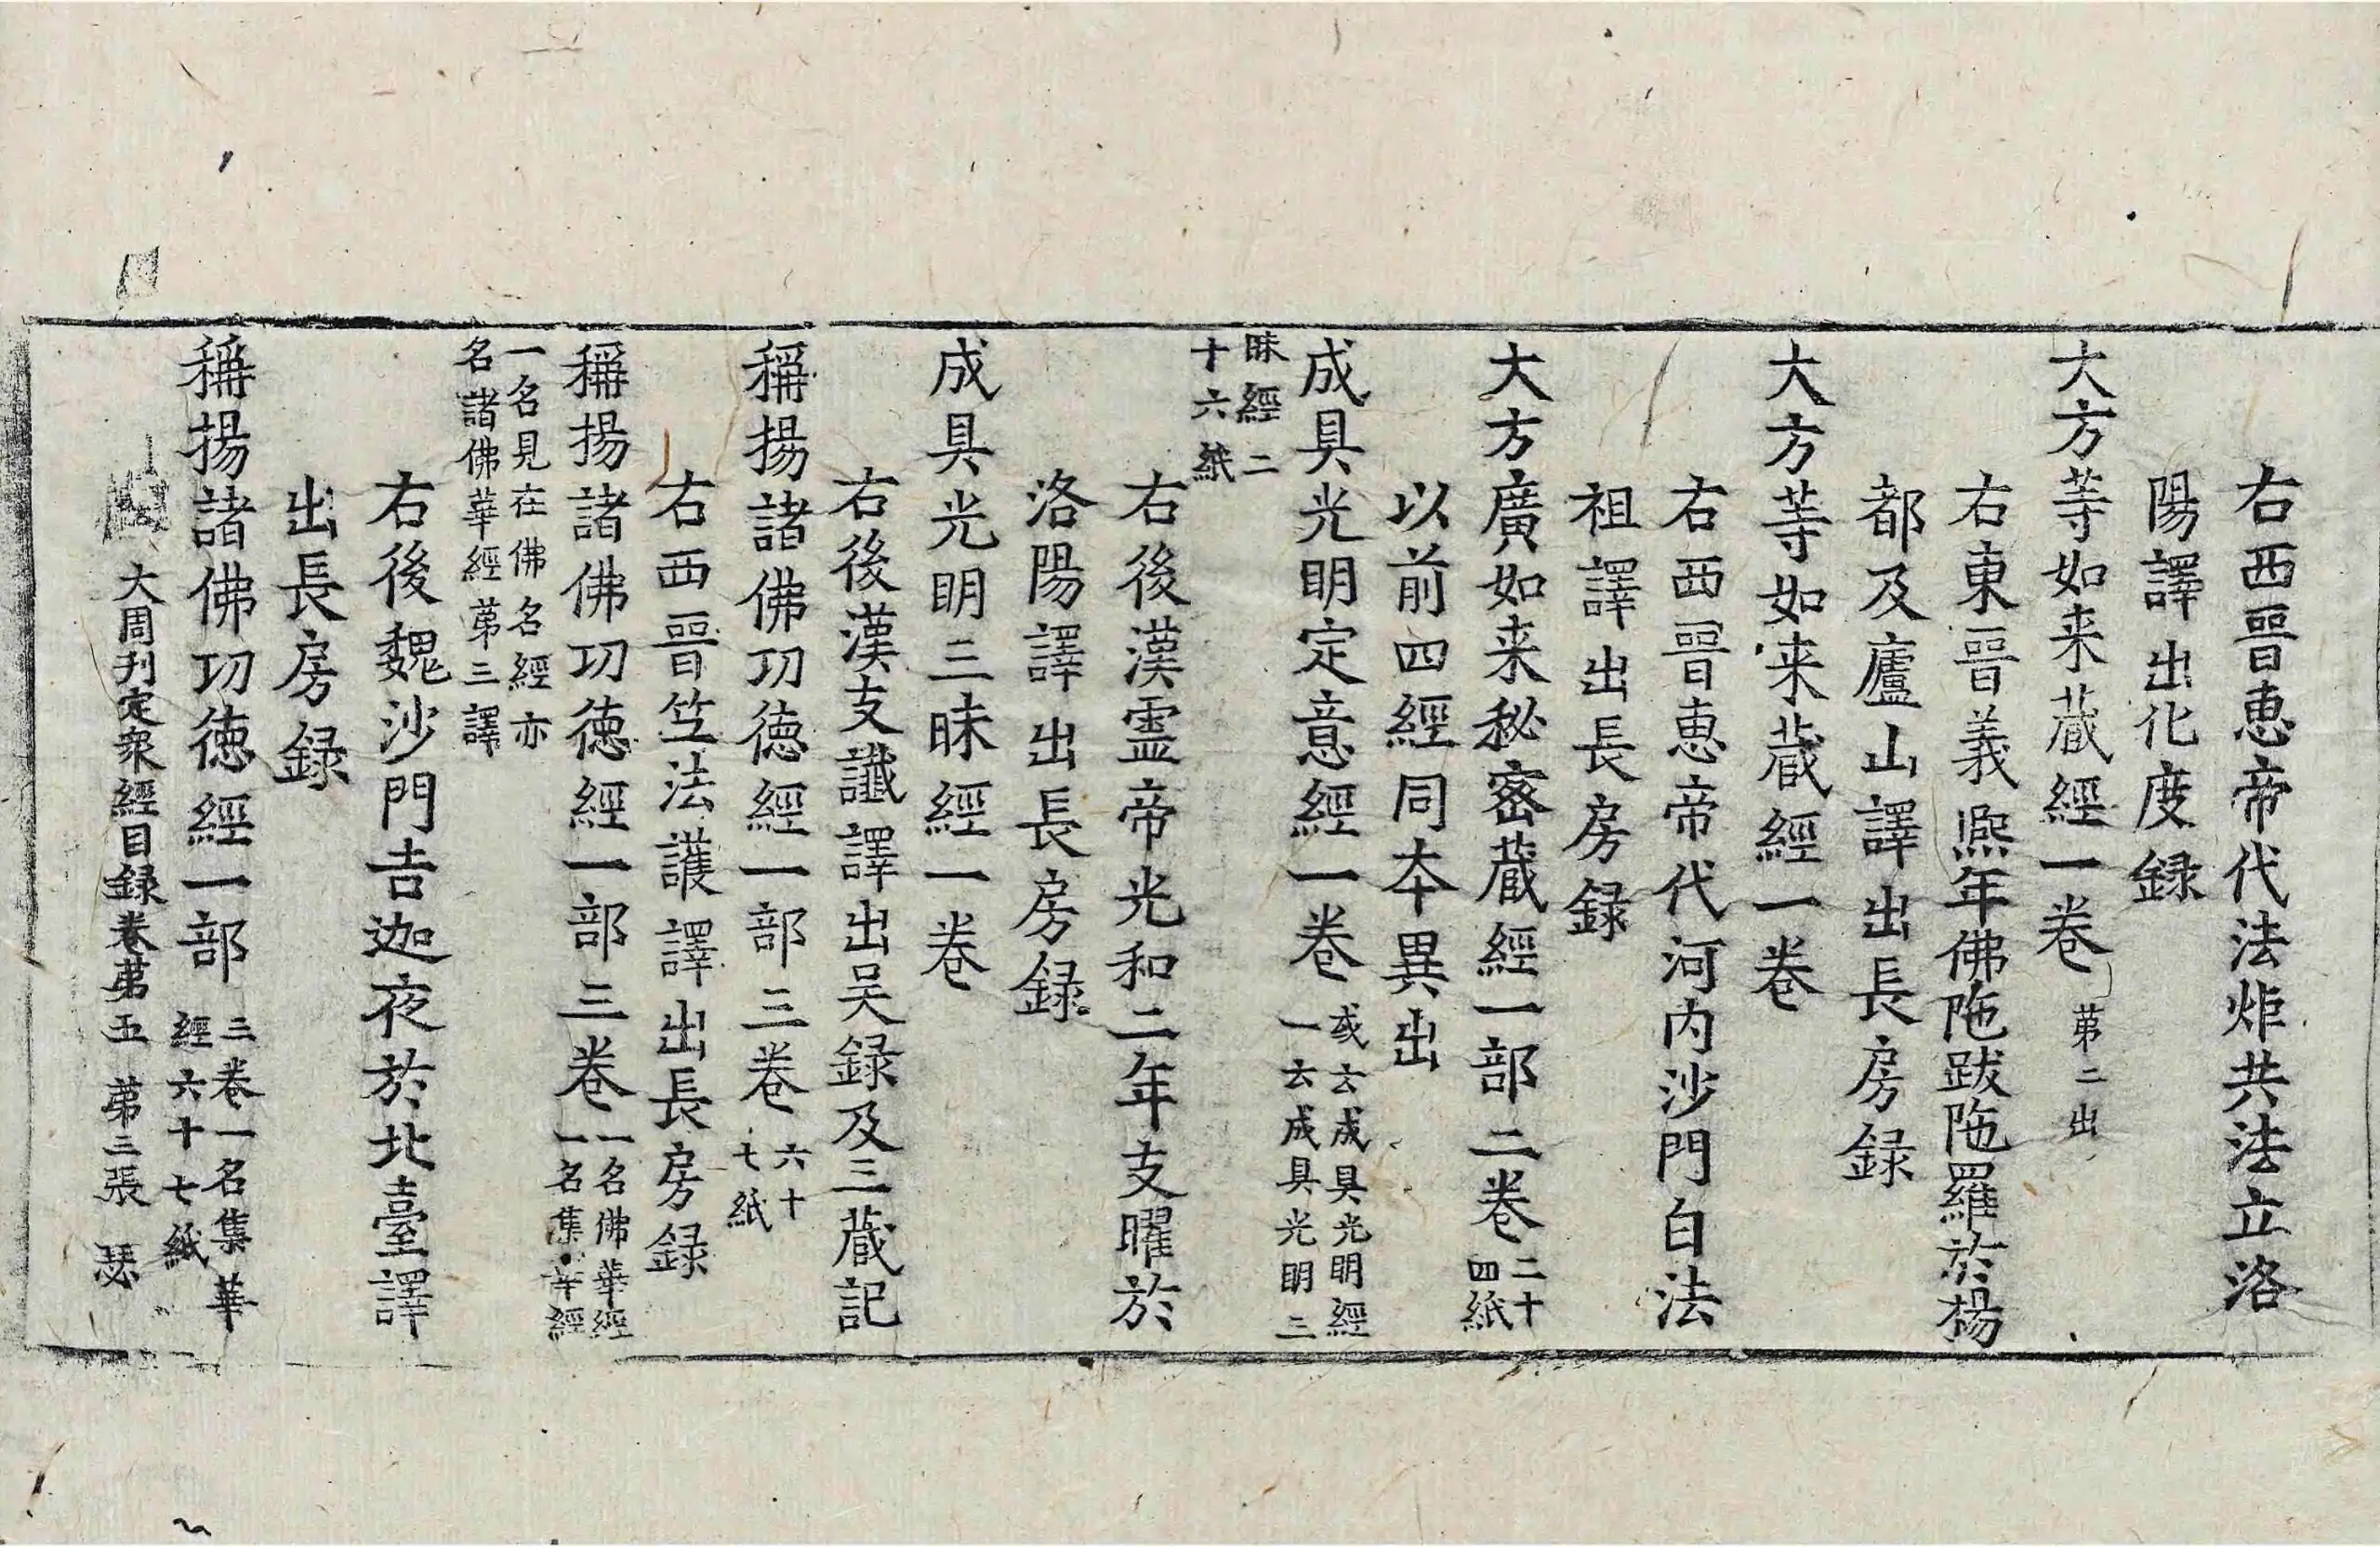 右西晉恵帝代法炬共法立洛
陽譯出化度録
大方等如来蔵經一巻 苐二出
右東晉義熈年佛陁跋陁羅於楊
都及廬山譯出長房録
大方等如来蔵經一巻
右西晉恵帝代河内沙門白法
祖譯出長房録
大方廣如来秘密蔵經一部二巻 二十
四紙
以前四經同本異出
成具光明定意經一巻 或云成具光明經
一云成具光明三
昧經二
十六紙
右後漢霊帝光和二年支曜於
洛陽譯出長房録
成具光明三昧經一巻
右後漢支讖譯出吴録及三蔵記
稱揚諸佛功徳經一部三巻 六十
七紙
右西晉竺法護譯出長房録
稱揚諸佛功徳經一部三巻 一名佛華經
一名集華經
一名見在佛名經亦
名諸佛華經苐三譯
右後魏沙門吉迦夜於北臺譯
出長房録
稱揚諸佛功徳經一部 三巻一名集華
經六十七紙
大周刊定衆經目録巻苐五 苐三張 瑟